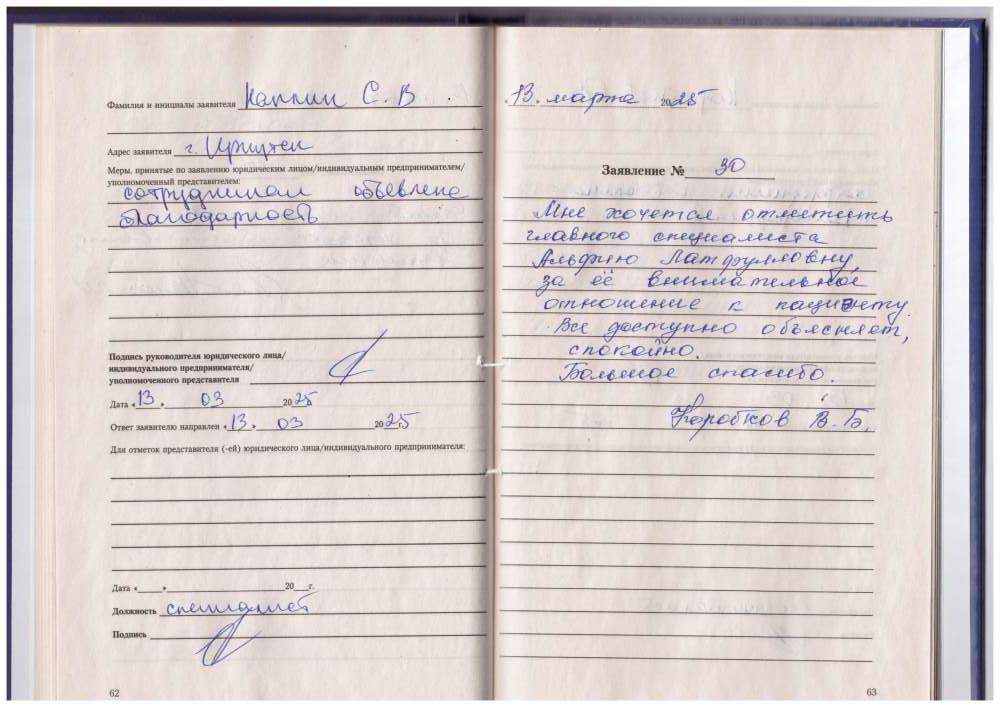 Фамилия и инициалы заявителя Каплин С. В
Адрес заявителя г. Иркутск
Меры, принятые по заявлению юридическим лицом/индивидуальным предпринимателем/
уполномоченный представителем:
сотрудникам объевлена
благодарность
Подпись руководителя юридического лица/
индивидуального предпринимателя/
уполномоченного представителя
Дата «13» 03 2025
Ответ заявителю направлен «13» 03 2025 г.
Для отметок представителя (-ей) юридического лица/индивидуального предпринимателя:
Дата «____»____20__г.
Должность специалист
Подпись
62
13. марта 2025
Заявление № 30
Мне хочется отметить
главного специалиста
Альфию Латфулловну,
за её внимательное
отношение к пациенту.
Все доступно объясняет,
спокойно.
Большое спасибо.
Коробков В. Б.
63